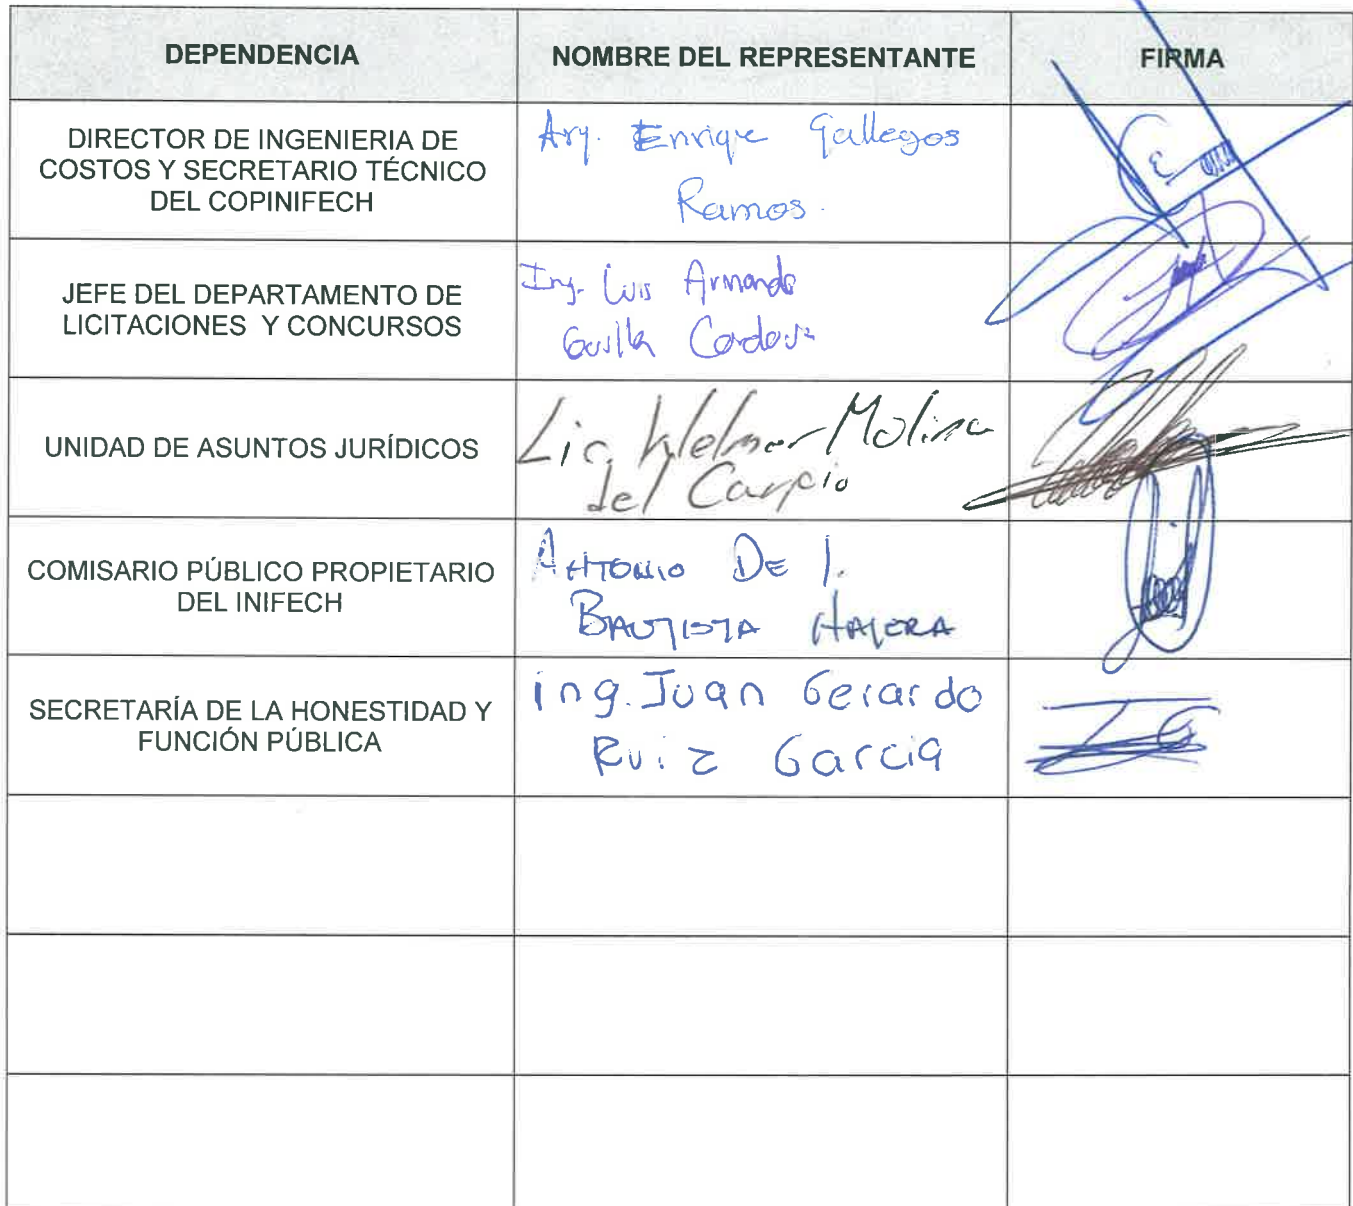 DEPENDENCIA
NOMBRE DEL REPRESENTANTE
FIRMA
DIRECTOR DE INGENIERIA DE
COSTOS Y SECRETARIO TÉCNICO
DEL COPINIFECH
Arq. Enrique Gallegos
Ramos.
JEFE DEL DEPARTAMENTO DE
LICITACIONES Y CONCURSOS
Ing. Luis Armando
Cordova
UNIDAD DE ASUNTOS JURÍDICOS
Lic. Welmar Molina
del Carpio
COMISARIO PÚBLICO PROPIETARIO
DEL INIFECH
ANTONIO DE J.
BAUTISTA
SECRETARÍA DE LA HONESTIDAD Y
FUNCIÓN PÚBLICA
ing. Juan Gerardo
Ruiz Garcia